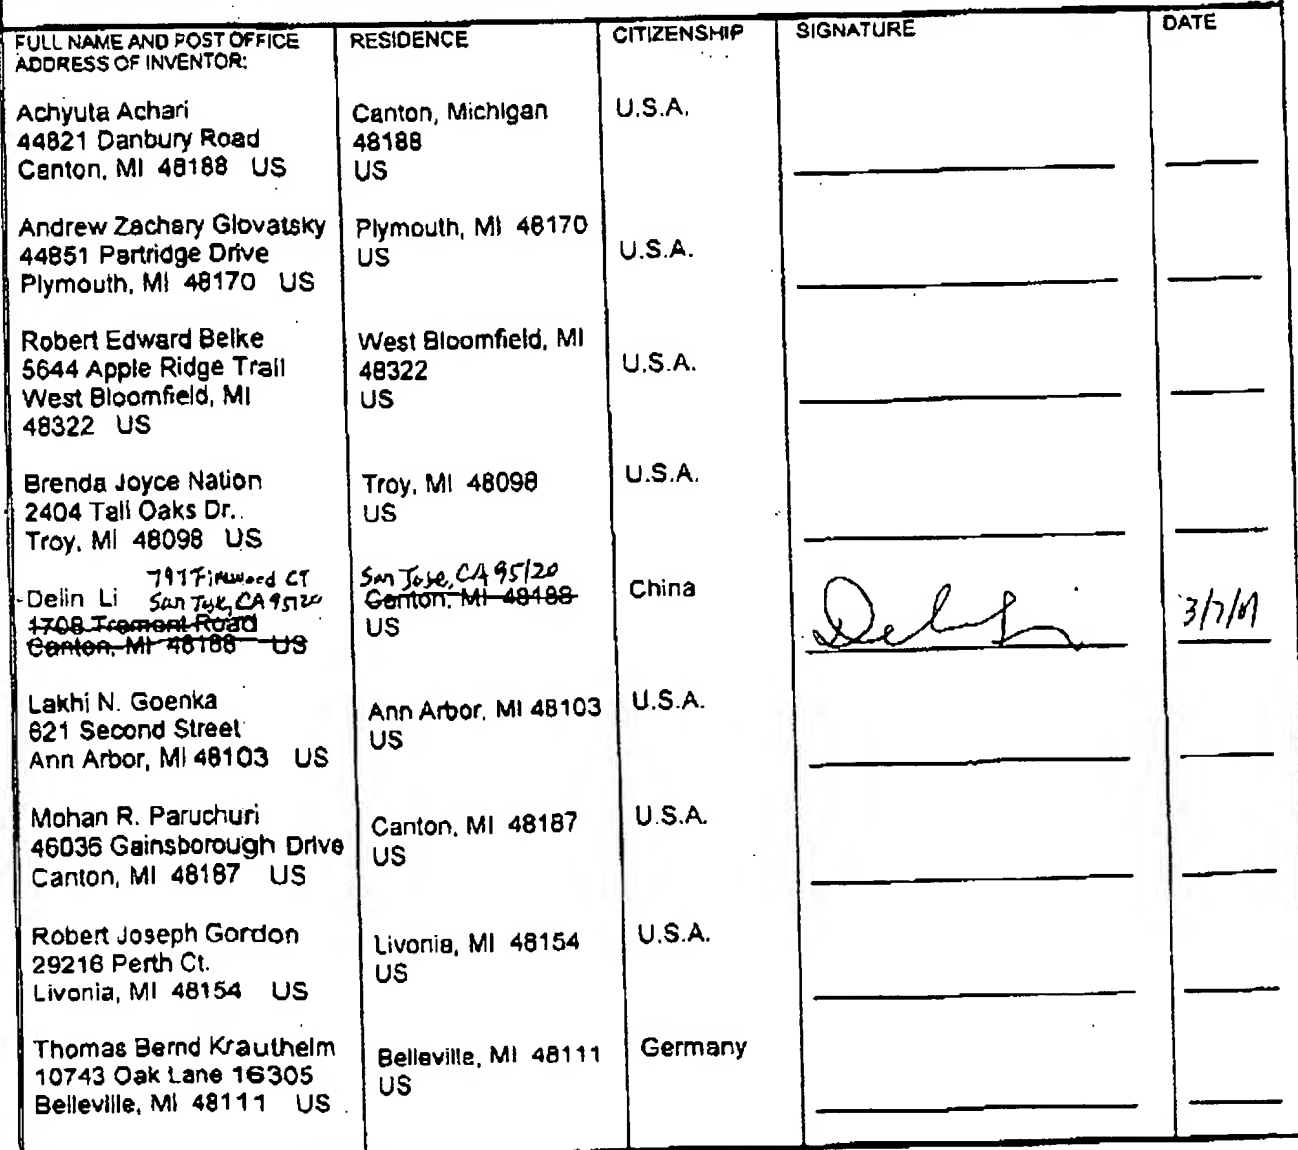 FULL NAME AND POST OFFICE ADDRESS OF INVENTOR:
RESIDENCE
CITIZENSHIP
SIGNATURE
DATE
Achyuta Achari
44821 Danbury Road
Canton, MI 48188 US
Canton, Michigan
48188
US
U.S.A.
Andrew Zachary Glovatsky
44851 Partridge Drive
Plymouth, MI 48170 US
Plymouth, MI 48170
US
U.S.A.
Robert Edward Belke
5644 Apple Ridge Trail
West Bloomfield, MI
48322 US
West Bloomfield, MI
48322
US
U.S.A.
Brenda Joyce Nation
2404 Tall Oaks Dr.
Troy, MI 48098 US
Troy, MI 48098
US
U.S.A.
797 Firewood CT
Delin Li San Jose, CA 95120
1708 Tremont Road
Canton, MI 48188 US
San Jose, CA 95120
Canton, MI 48188
US
China
Delin Li
3/7/01
Lakhi N. Goenka
821 Second Street
Ann Arbor, MI 48103 US
Ann Arbor, MI 48103
US
U.S.A.
Mohan R. Paruchuri
46035 Gainsborough Drive
Canton, MI 48187 US
Canton, MI 48187
US
U.S.A.
Robert Joseph Gordon
29216 Perth Ct.
Livonia, MI 48154 US
Livonia, MI 48154
US
U.S.A.
Thomas Bernd Krautheim
10743 Oak Lane 16305
Belleville, MI 48111 US
Belleville, MI 48111
US
Germany